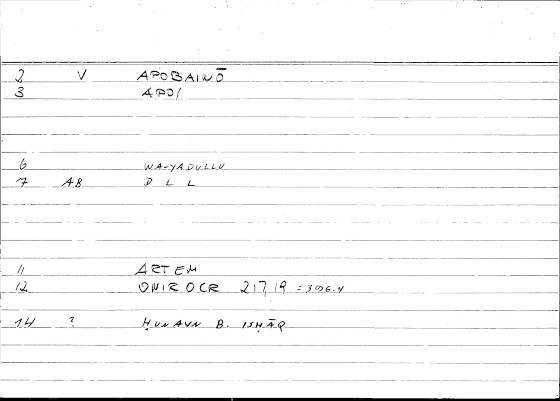 2 V APOBAINŌ
3 APO/
6 WA-YADULLU
7 AB D L L
11 ARTEM
12 ONIROCR 217,19 = 396.4
14 ? ḤUNAYN B. ISḤĀQ